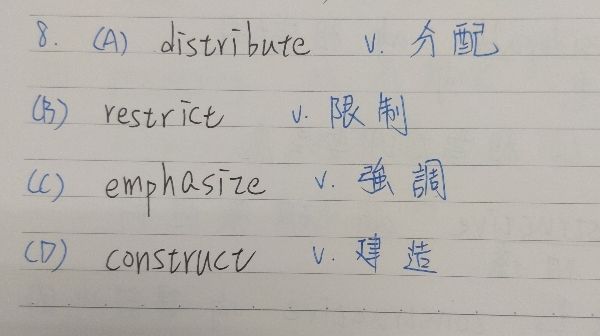 8. (A) distribute v. 分配
(B) restrict v. 限制
(C) emphasize v. 強調
(D) construct v. 建造